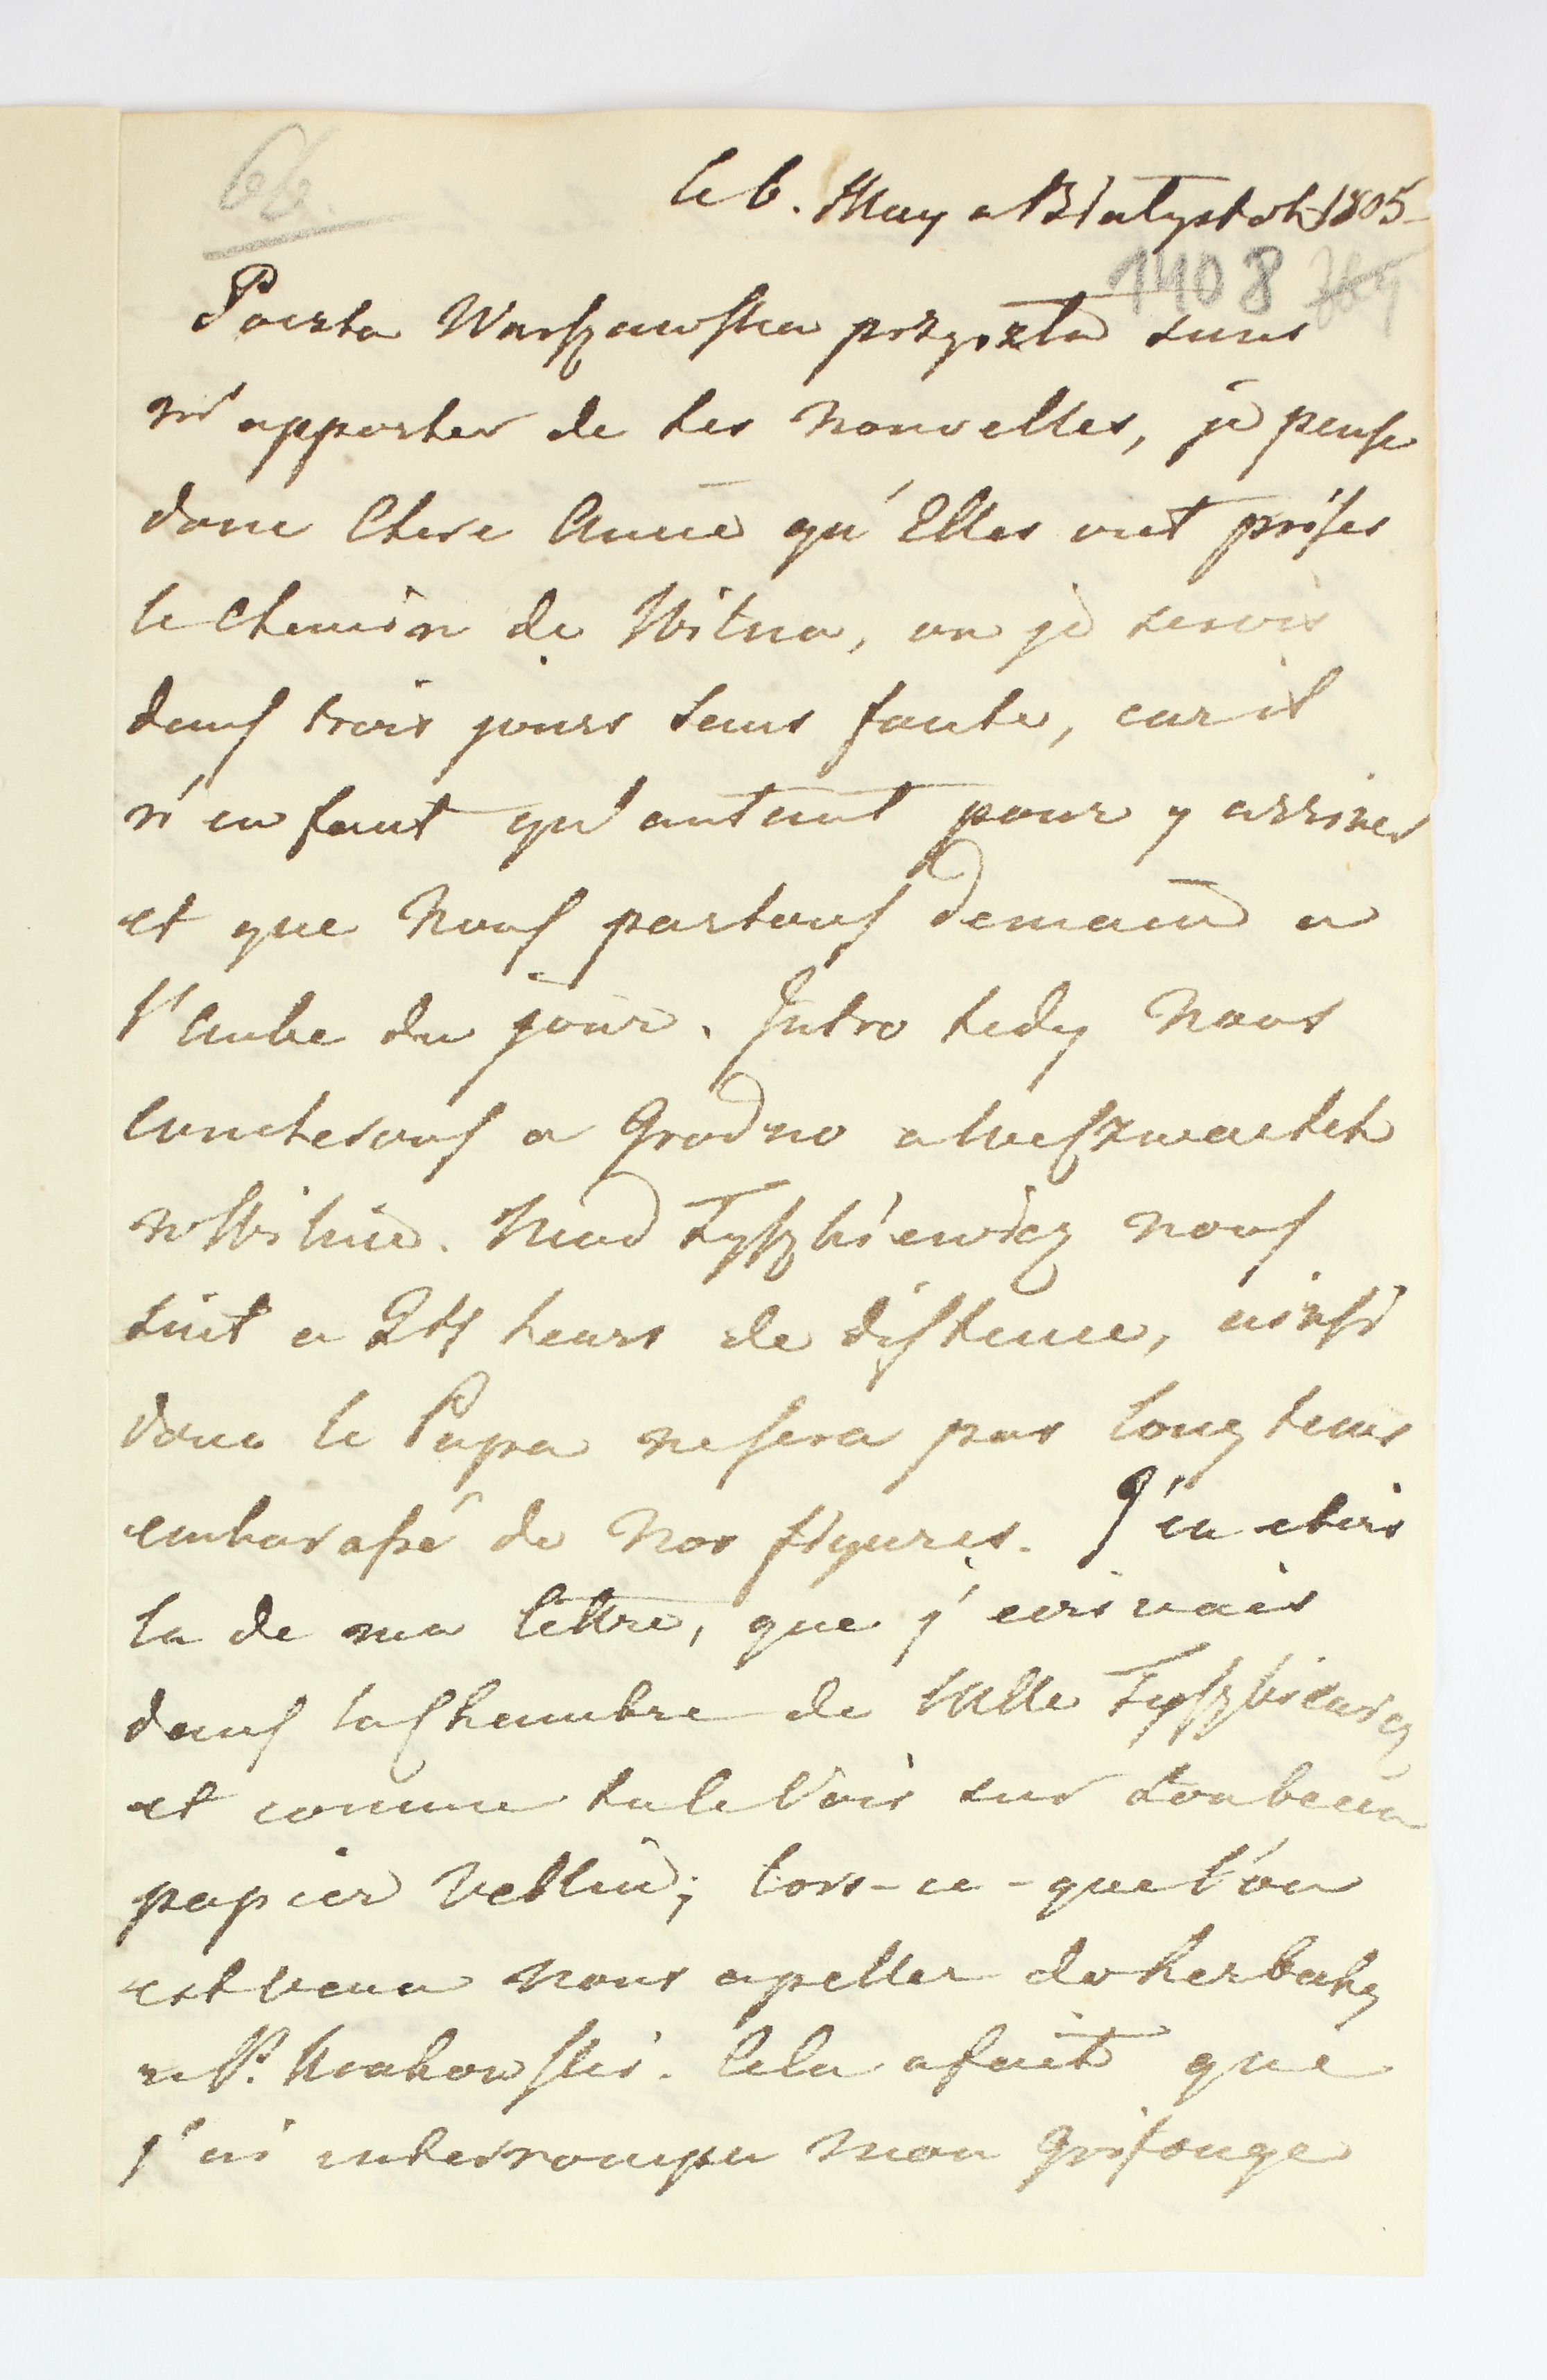 66.
le 6. May a Białystok 1805
1408 784
Poczta Warszawska przyszla sans
m'apporter de tes nouvelles, je pense
donc Chere Amie qu'Elles ont prises
le Chemin de Wilna, ou je serois
dans trois jours sans faute, car il
n'en faut qu'autant pour y arriver
et que Nous partons demain a
l'Aube du jour. Jutro tedy Nous
coucherons a Grodno a we czwartek
w Wilnie. Mad Tyszkiewicz nous
suit a 24 heurs de distance, ainsi
donc le Papa ne sera pas longtems
embarassé de Nos figures. J'en etois
la de ma lettre, que j'ecrivais
dans la Chambre de Mlle Tyszkiewicz
et comme tu le Vois sur son beau
papier Vellin; lors-ce-que l'on
est venu nous apeller do herbaty
z P. Krakowskiei. Cela a fait que
j'ai interrompu mon Grifonage